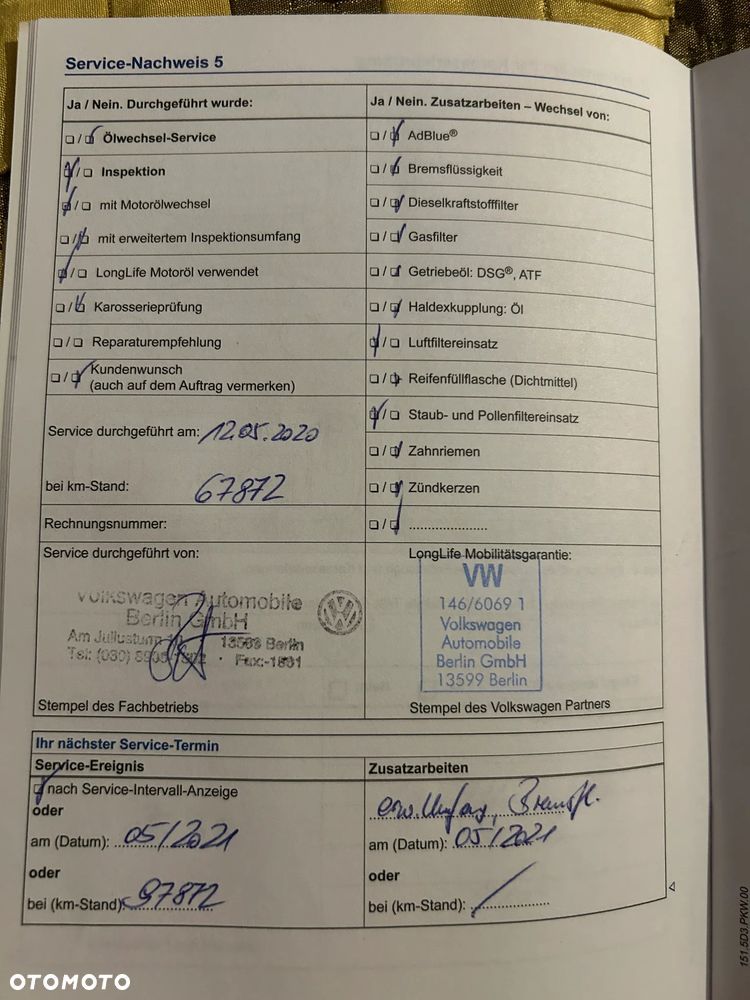 Service-Nachweis 5
Ja / Nein. Durchgeführt wurde:
❏ / ❏ Ölwechsel-Service
❏ / ❏ Inspektion
❏ / ❏ mit Motorölwechsel
❏ / ❏ mit erweitertem Inspektionsumfang
❏ / ❏ LongLife Motoröl verwendet
❏ / ❏ Karosserieprüfung
❏ / ❏ Reparaturempfehlung
❏ / ❏ Kundenwunsch
(auch auf dem Auftrag vermerken)
Service durchgeführt am: 12.05.2020
bei km-Stand: 67872
Rechnungsnummer:
Service durchgeführt von:
Volkswagen Automobile
Berlin GmbH
Am Juliusturm
13599 Berlin
Tel: (030)
Fax:-1831
Stempel des Fachbetriebs
Ja / Nein. Zusatzarbeiten – Wechsel von:
❏ / ❏ AdBlue®
❏ / ❏ Bremsflüssigkeit
❏ / ❏ Dieselkraftstofffilter
❏ / ❏ Gasfilter
❏ / ❏ Getriebeöl: DSG®, ATF
❏ / ❏ Haldexkupplung: Öl
❏ / ❏ Luftfiltereinsatz
❏ / ❏ Reifenfüllflasche (Dichtmittel)
❏ / ❏ Staub- und Pollenfiltereinsatz
❏ / ❏ Zahnriemen
❏ / ❏ Zündkerzen
❏ / ❏ ......................
LongLife Mobilitätsgarantie:
VW
146/6069 1
Volkswagen
Automobile
Berlin GmbH
13599 Berlin
Stempel des Volkswagen Partners
Ihr nächster Service-Termin
Service-Ereignis
❏ nach Service-Intervall-Anzeige
oder
am (Datum): 05/2021
oder
bei (km-Stand): 97872
Zusatzarbeiten
erw. Umfang, Bremsfl.
am (Datum): 05/2021
oder
bei (km-Stand): /
151.5D3.PKW.00
OTOMOTO